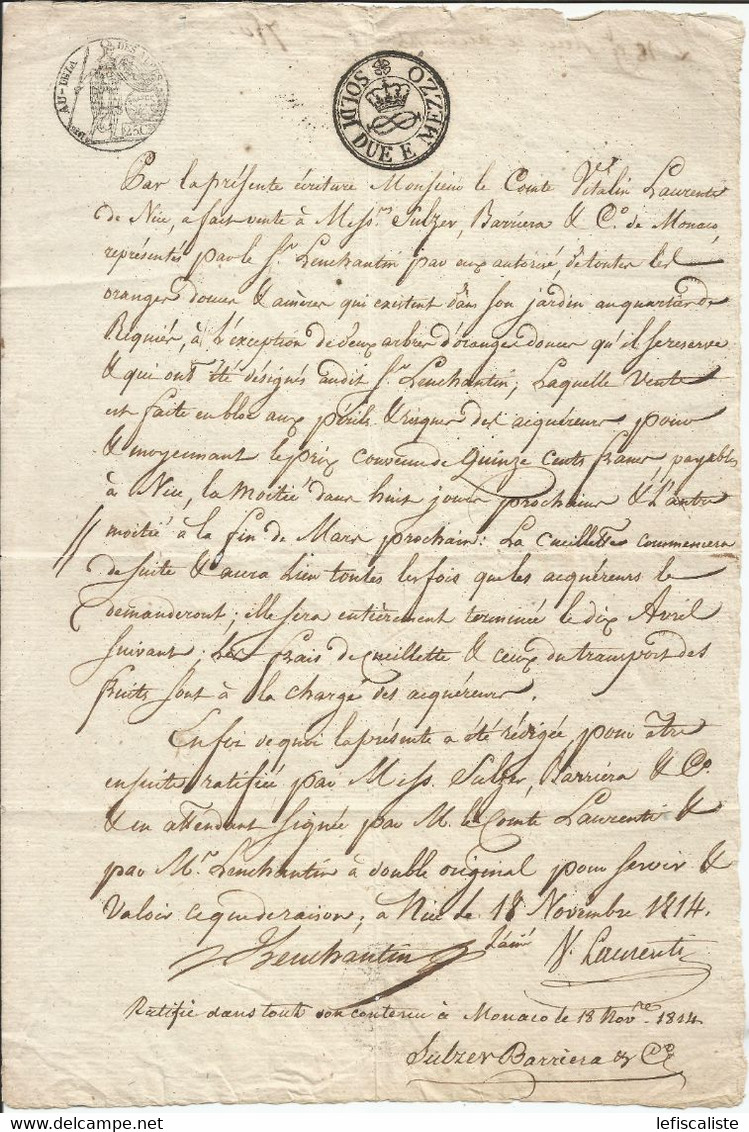 AU-DELA DES ALPES
25C
SOLDI DUE E MEZZO
Par la présente écriture Monsieur le Comte Vitalin Laurenti
de Nice, a fait vente à Mess.rs Sulzer, Barriera & C.o de Monaco,
représentés par le S.r Leuchantin par eux autorisé, de toutes les
oranges douces & amères qui existent dans son jardin au quartier de
Riquier, à l'exception de deux arbres d'oranges douces qu'il se reserve
& qui ont été désignés audit S.r Leuchantin; Laquelle Vente
est faite en bloc aux périls & risques des acquéreurs pour
& moyennant le prix convenu de Quinze cents francs, payables
à Nice, la moitié dans huit jours prochains & l'autre
moitié à la fin de Mars prochain: La cueillette commencera
de suite & aura lieu toutes les fois que les acquéreurs le
demanderont; elle sera entièrement terminée le dix Avril
suivant; Les frais de cueillette & ceux du transport des
fruits sont à la charge des acquéreurs.
En foi de quoi la présente a été rédigée pour être
ensuite ratifiée par Mess. Sulzer, Barriera & C.o
& en attendant signée par M. le Comte Laurenti &
par M.r Leuchantin à double original pour servir &
Valoir ce que de raison; à Nice le 18 Novembre 1814.
Leuchantin l'ainé V. Laurenti
Ratifié dans tout son contenu à Monaco le 18 Nov.re 1814
Sulzer Barriera & C.o
lefiscaliste